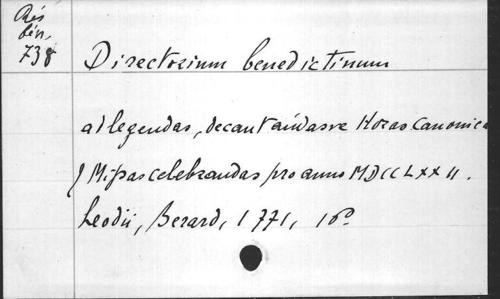 Rés
bén.
738
Directorium benedictinum
ad legendas, decantandasve Horas Canonica
& Missas celebrandas pro anno MDCCLXXII.
Leodii, Berard, 1771, 16º